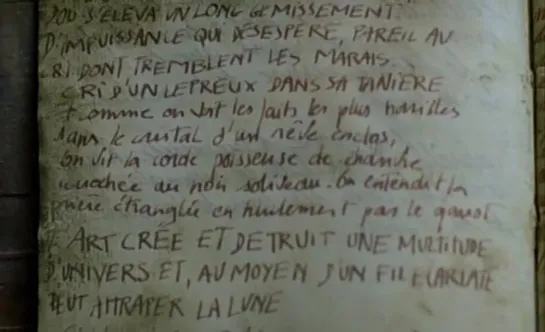 D'OÙ S'ELEVA UN LONG GEMISSEMENT
D'IMPUISSANCE QUI DESESPERE, PAREIL AU
CRI DONT TREMBLENT LES MARAIS.
CRI D'UN LEPREUX DANS SA TANIÈRE
comme on voit les faits les plus horribles
dans le cristal d'un rêve enclos,
on vit la corde poisseuse de chanvre
accrochée au noir soliveau. On entendit la
prière étranglée en hurlement par le
ART CRÉE ET DETRUIT UNE MULTITUDE
D'UNIVERS ET, AU MOYEN D'UN FIL ECARLATE
PEUT ATTRAPER LA LUNE